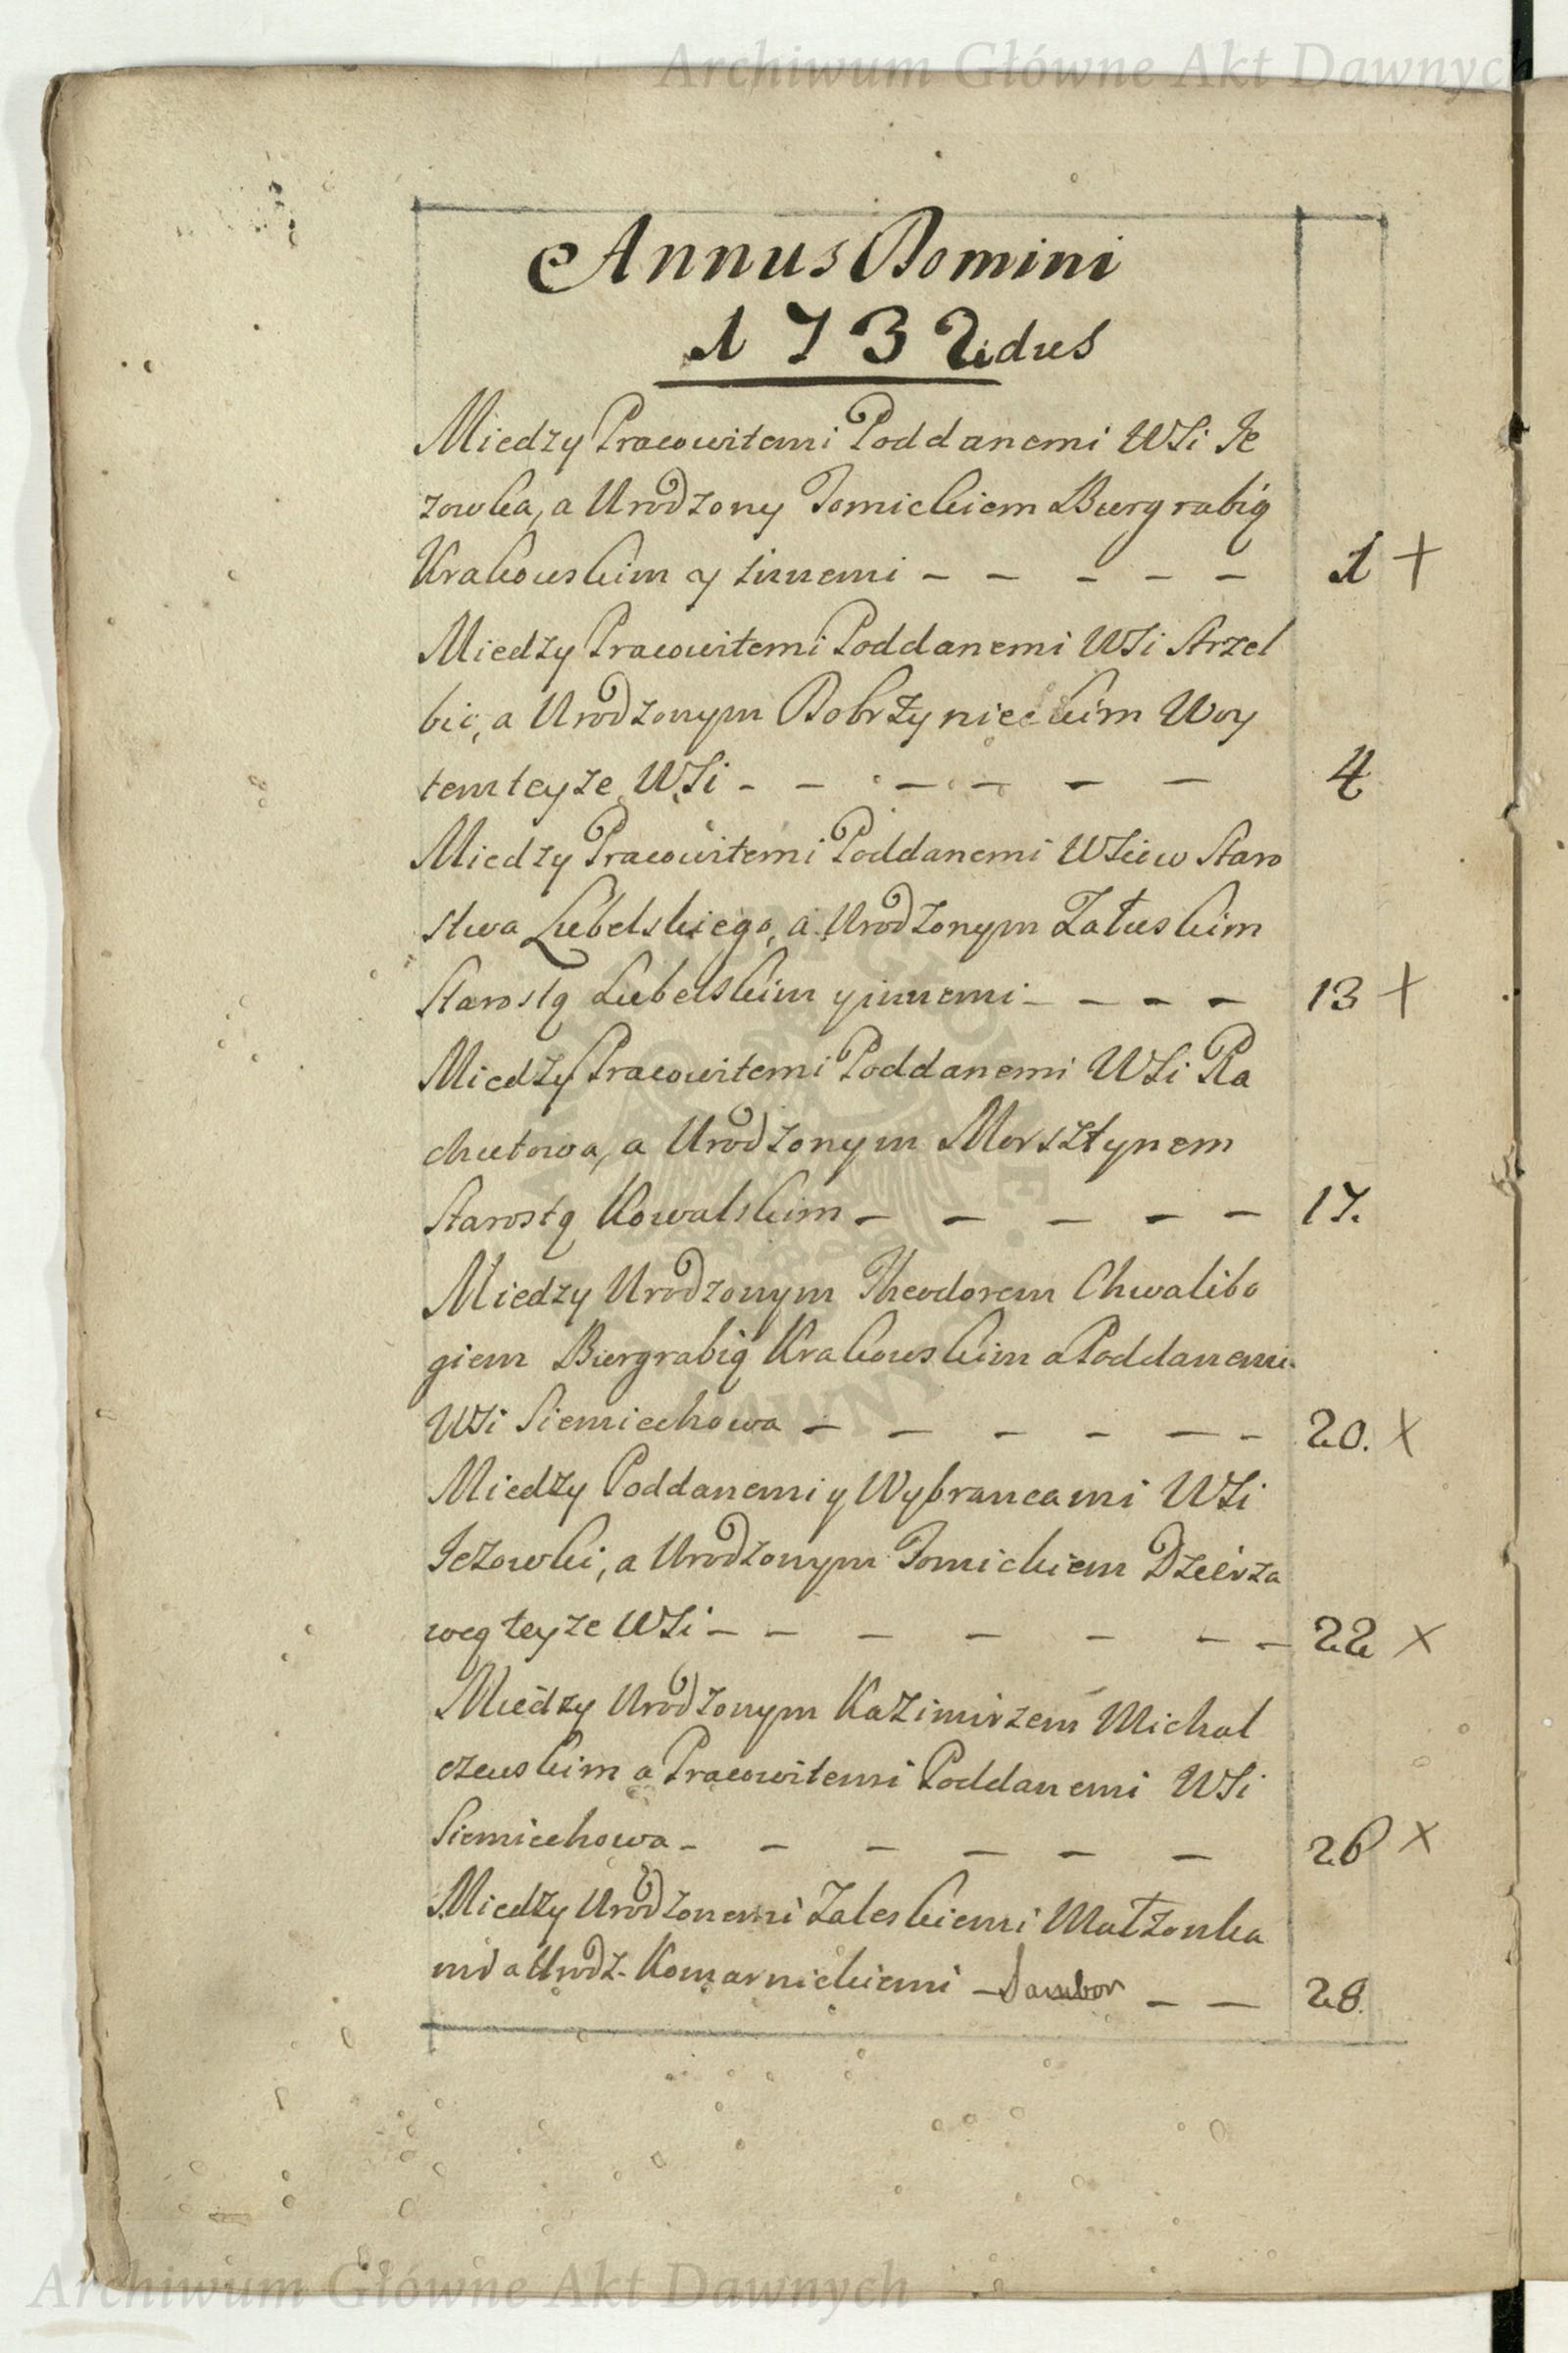 Archiwum Główne Akt Dawnych
Annus Domini
1732dus
Miedzy Pracowitemi Poddanemi WSi Je
zowka, a Urodzony Tomickiem Burgrabią
Krakowskim y innemi - - - - - 1 +
Miedzy Pracowitemi Poddanemi WSi Strzel
bic, a Urodzonym Dobrzynieckim Woy
tem teyze WSi - - - - - - 4
Miedzy Pracowitemi Poddanemi WSiow Staro
stwa Lubelskiego, a Urodzonym Załuskim
Starostą Lubelskim y innemi - - - - 13 +
Miedzy Pracowitemi Poddanemi WSi Ra
chutowa, a Urodzonym Morsztynem
Starostą Kowalskim - - - - - 17.
Miedzy Urodzonym Theodorem Chwalibo
giem Burgrabią Krakowskim a Poddanemi
WSi Siemiechowa - - - - - - 20. x
Miedzy Poddanemi y Wybrancami WSi
Jezowki, a Urodzonym Tomickiem Dzierza
wcą teyze WSi - - - - - - - 22 x
Miedzy Urodzonym Kazimirzem Michal
czewskim a Pracowitemi Poddanemi WSi
Siemiechowa - - - - - - 26 x
Miedzy Urodzonemi Zaleskiemi Małzonka
mi a Urodz. Komarnickiemi - Sambor - - 28.
Archiwum Główne Akt Dawnych